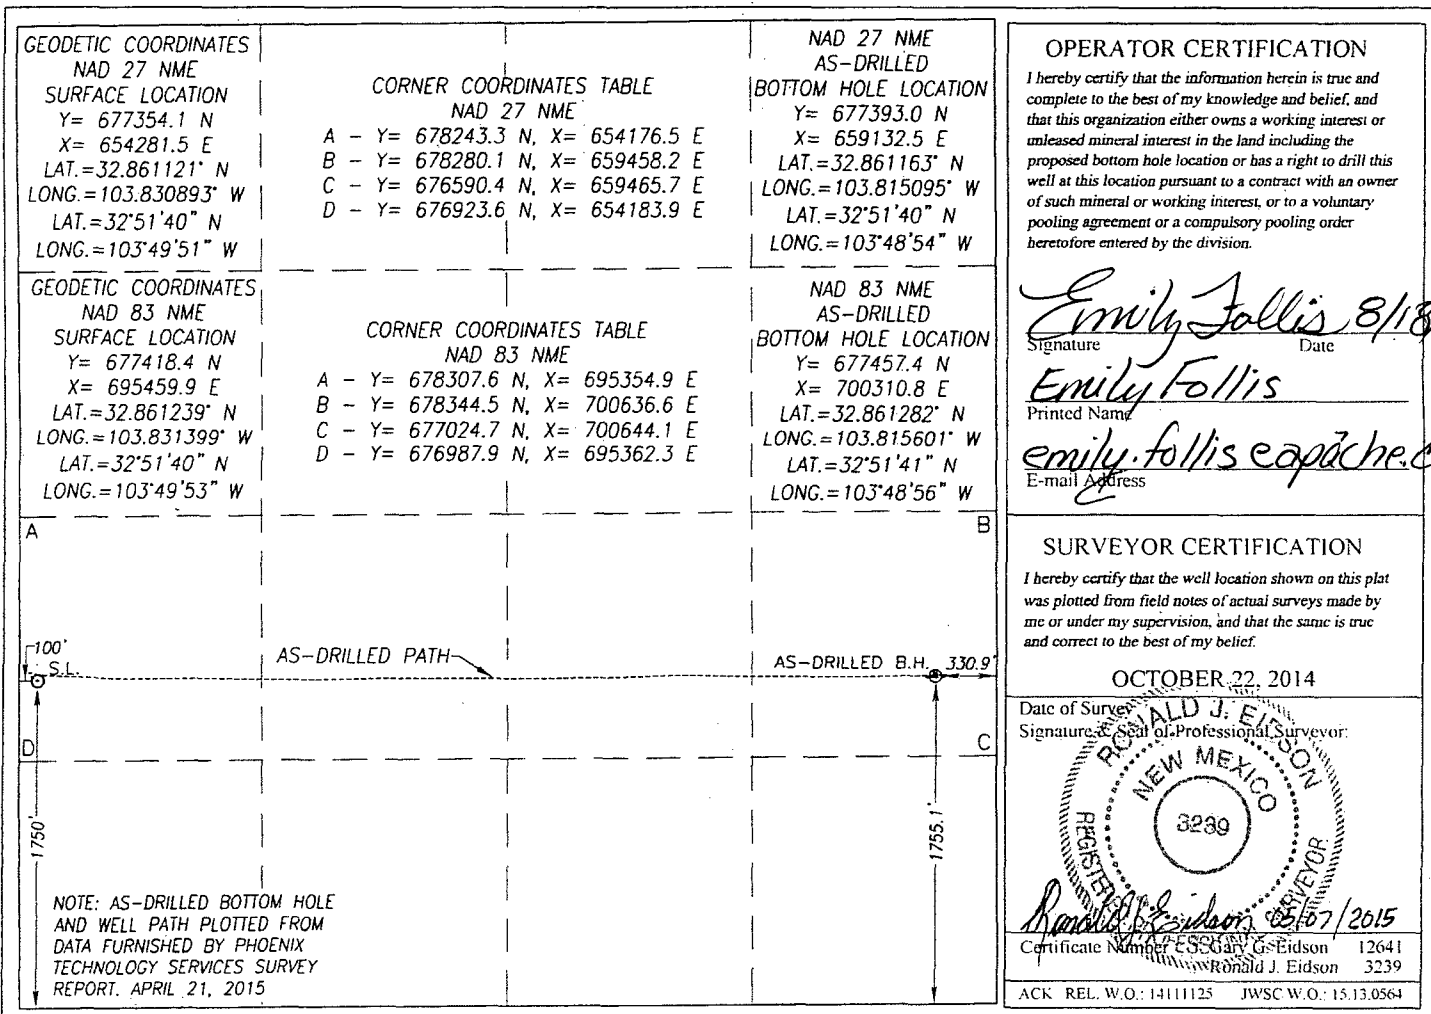 GEODETIC COORDINATES
NAD 27 NME
SURFACE LOCATION
Y= 677354.1 N
X= 654281.5 E
LAT.=32.861121° N
LONG.=103.830893° W
LAT.=32°51'40" N
LONG.=103°49'51" W
CORNER COORDINATES TABLE
NAD 27 NME
A - Y= 678243.3 N, X= 654176.5 E
B - Y= 678280.1 N, X= 659458.2 E
C - Y= 676590.4 N, X= 659465.7 E
D - Y= 676923.6 N, X= 654183.9 E
NAD 27 NME
AS-DRILLED
BOTTOM HOLE LOCATION
Y= 677393.0 N
X= 659132.5 E
LAT.=32.861163° N
LONG.=103.815095° W
LAT.=32°51'40" N
LONG.=103°48'54" W
GEODETIC COORDINATES
NAD 83 NME
SURFACE LOCATION
Y= 677418.4 N
X= 695459.9 E
LAT.=32.861239° N
LONG.=103.831399° W
LAT.=32°51'40" N
LONG.=103°49'53" W
CORNER COORDINATES TABLE
NAD 83 NME
A - Y= 678307.6 N, X= 695354.9 E
B - Y= 678344.5 N, X= 700636.6 E
C - Y= 677024.7 N, X= 700644.1 E
D - Y= 676987.9 N, X= 695362.3 E
NAD 83 NME
AS-DRILLED
BOTTOM HOLE LOCATION
Y= 677457.4 N
X= 700310.8 E
LAT.=32.861282° N
LONG.=103.815601° W
LAT.=32°51'41" N
LONG.=103°48'56" W
A
B
100'
S.L.
AS-DRILLED PATH
AS-DRILLED B.H.
330.9'
D
C
1750'
1755.1'
NOTE: AS-DRILLED BOTTOM HOLE
AND WELL PATH PLOTTED FROM
DATA FURNISHED BY PHOENIX
TECHNOLOGY SERVICES SURVEY
REPORT. APRIL 21, 2015
OPERATOR CERTIFICATION
I hereby certify that the information herein is true and
complete to the best of my knowledge and belief, and
that this organization either owns a working interest or
unleased mineral interest in the land including the
proposed bottom hole location or has a right to drill this
well at this location pursuant to a contract with an owner
of such mineral or working interest, or to a voluntary
pooling agreement or a compulsory pooling order
heretofore entered by the division.
Emily Follis 8/18
Signature Date
Emily Follis
Printed Name
emily.follis@apache.c
E-mail Address
SURVEYOR CERTIFICATION
I hereby certify that the well location shown on this plat
was plotted from field notes of actual surveys made by
me or under my supervision, and that the same is true
and correct to the best of my belief.
OCTOBER 22, 2014
Date of Survey
Signature & Seal of Professional Surveyor:
RONALD J. EIDSON
NEW MEXICO
3239
REGISTERED PROFESSIONAL SURVEYOR
Ronald J. Eidson 05/07/2015
Certificate Number Gary G. Eidson 12641
Ronald J. Eidson 3239
ACK REL. W.O.: 14111125 JWSC W.O.: 15.13.0564